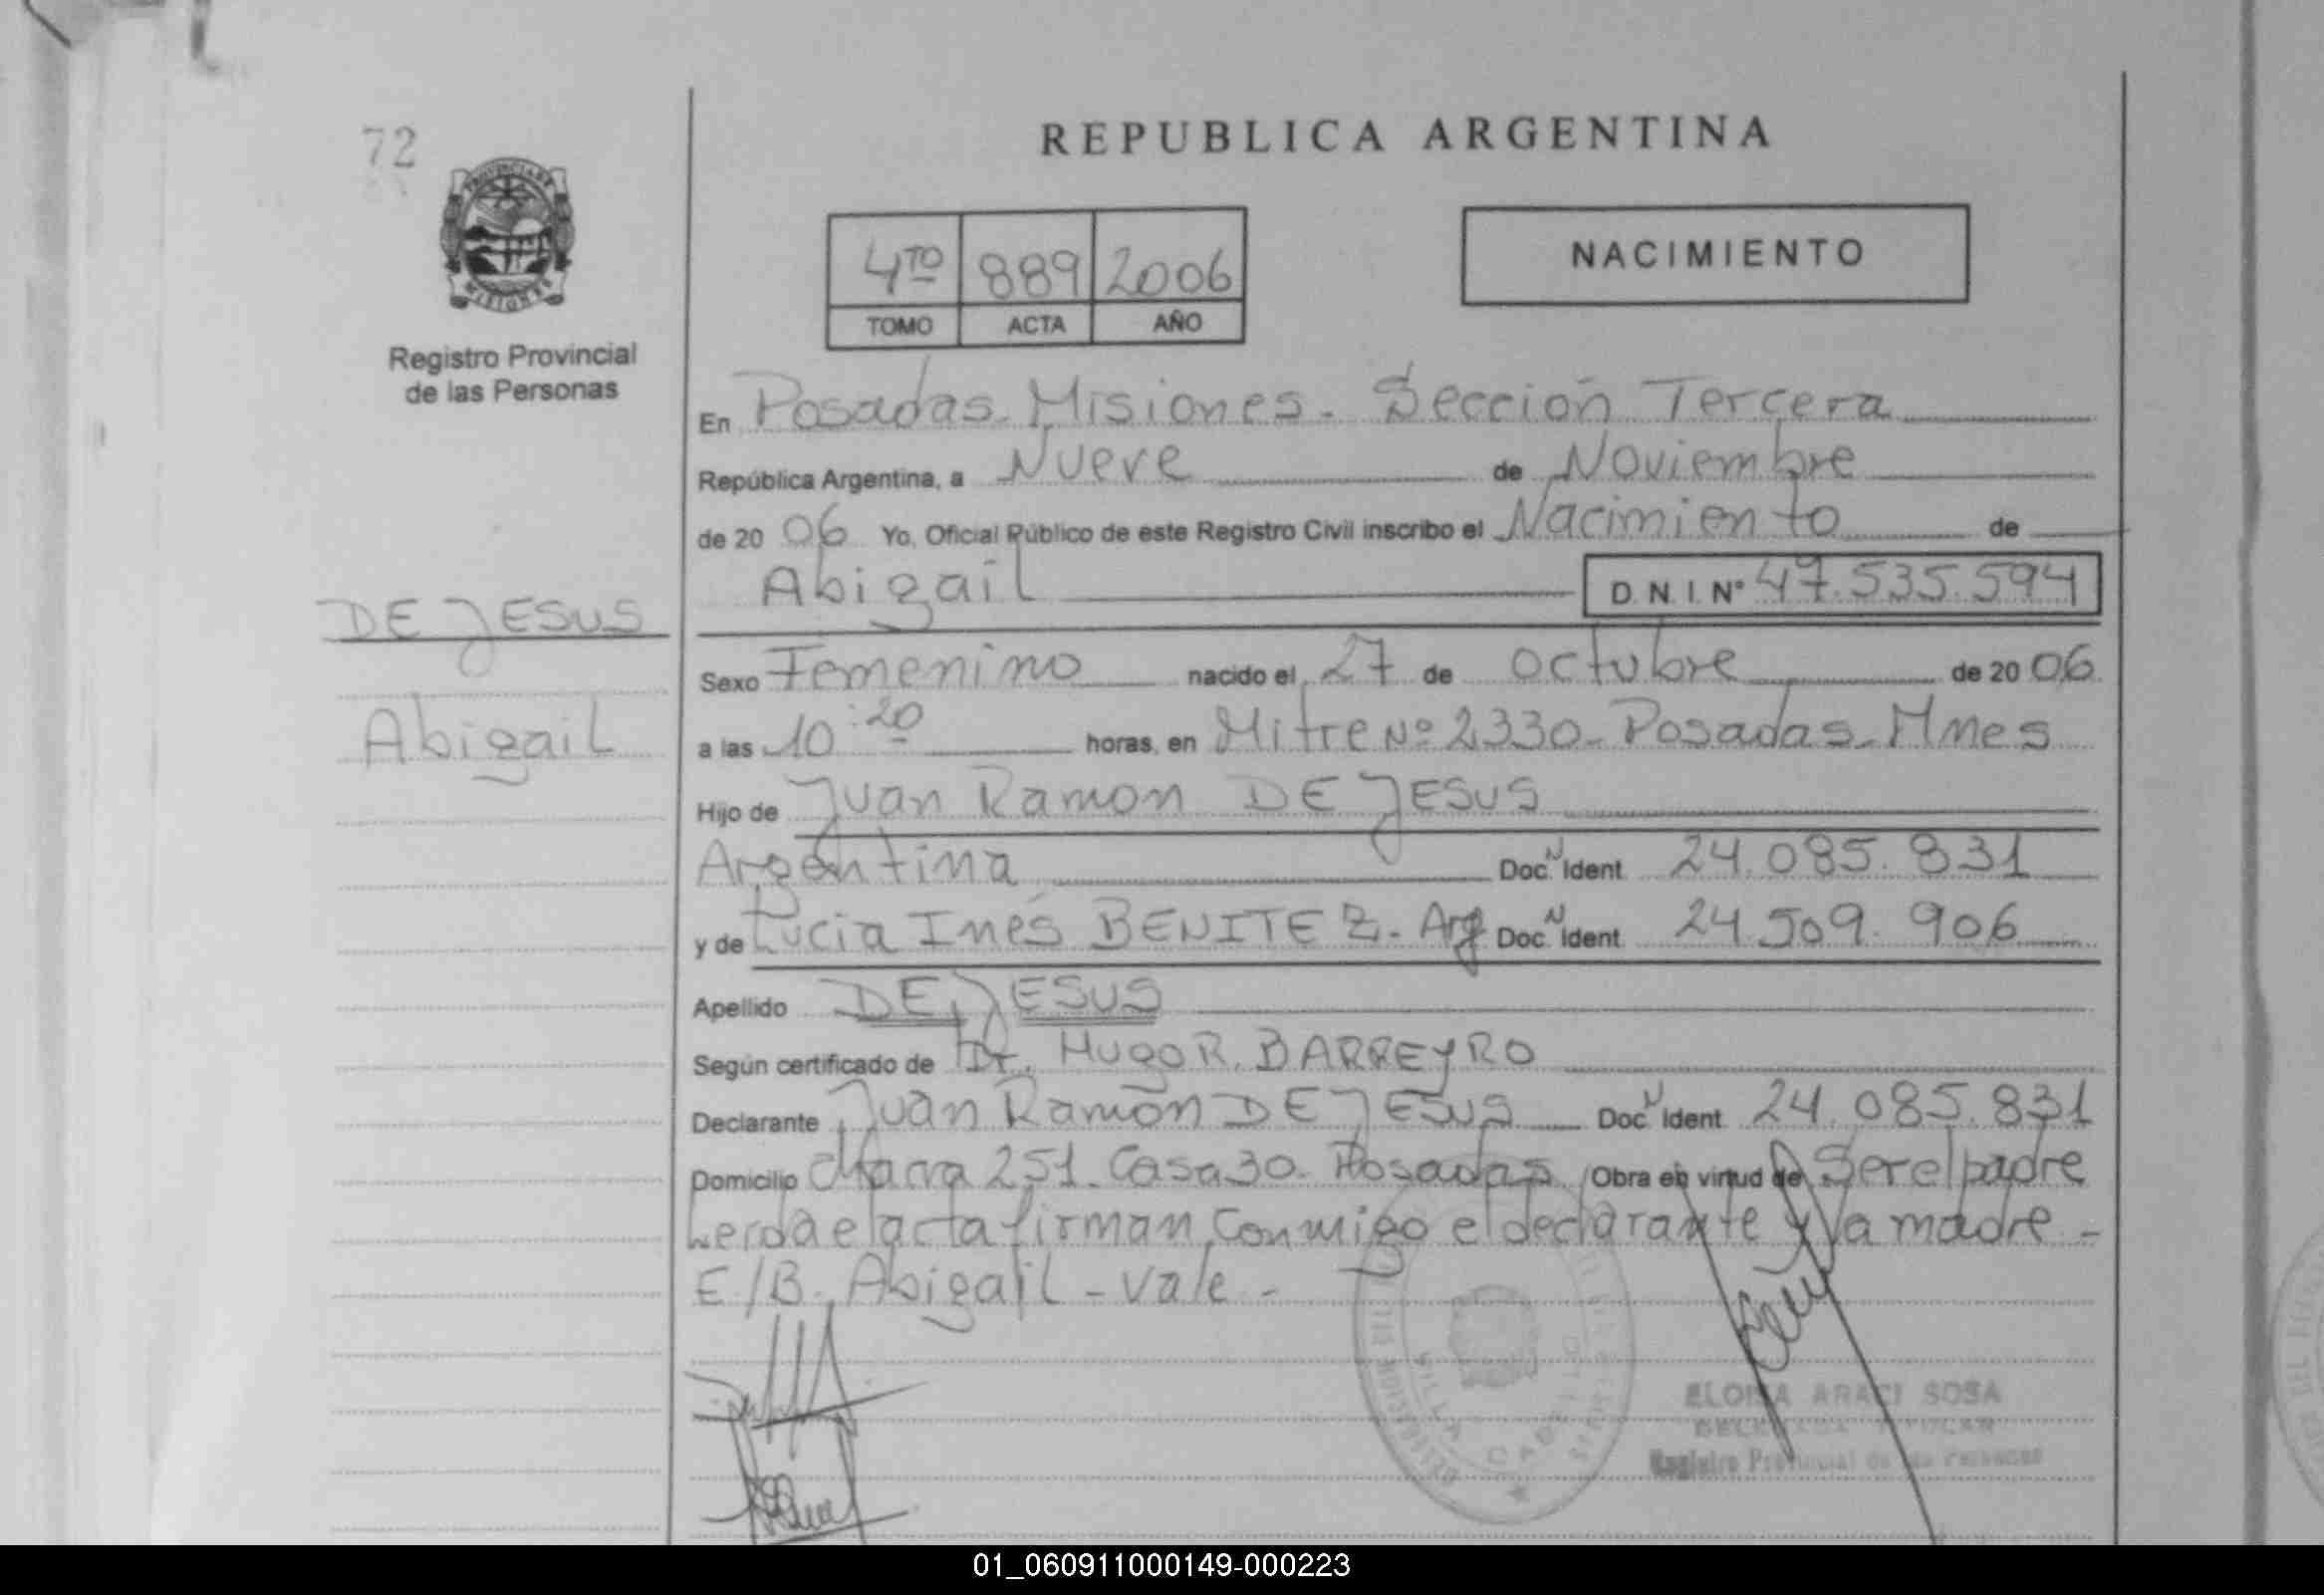 72
REPUBLICA ARGENTINA
PROVINCIA DE
MISIONES
4TO 889 2006
TOMO ACTA AÑO
NACIMIENTO
Registro Provincial
de las Personas
En Posadas-Misiones. Sección Tercera
República Argentina, a Nueve de Noviembre
de 20 06 Yo, Oficial Público de este Registro Civil inscribo el Nacimiento de
Abigail D.N.I. N° 47.535.594
DE JESUS
Abigail
Sexo Femenino nacido el 27 de octubre de 20 06
a las 10:20 horas, en Mitre Nº 2330-Posadas-Mnes
Hijo de Juan Ramon DE JESUS
Argentina Doc. N Ident. 24.085.831
y de Lucia Inés BENITEZ. Arg Doc. N Ident. 24.509.906
Apellido DE JESUS
Según certificado de Dr. Hugo R. BARREYRO
Declarante Juan Ramón DE JESUS Doc. N Ident. 24.085.831
Domicilio Chacra 251-Casa 30-Posadas Obra en virtud de Ser el padre
Leida el acta firman conmigo el declarante y la madre -
E/B. Abigail - vale -
VILLA CABELLO
ELOISA ARACI SOSA
DELEGADA TITULAR
Registro Provincial de las Personas
01_060911000149-000223